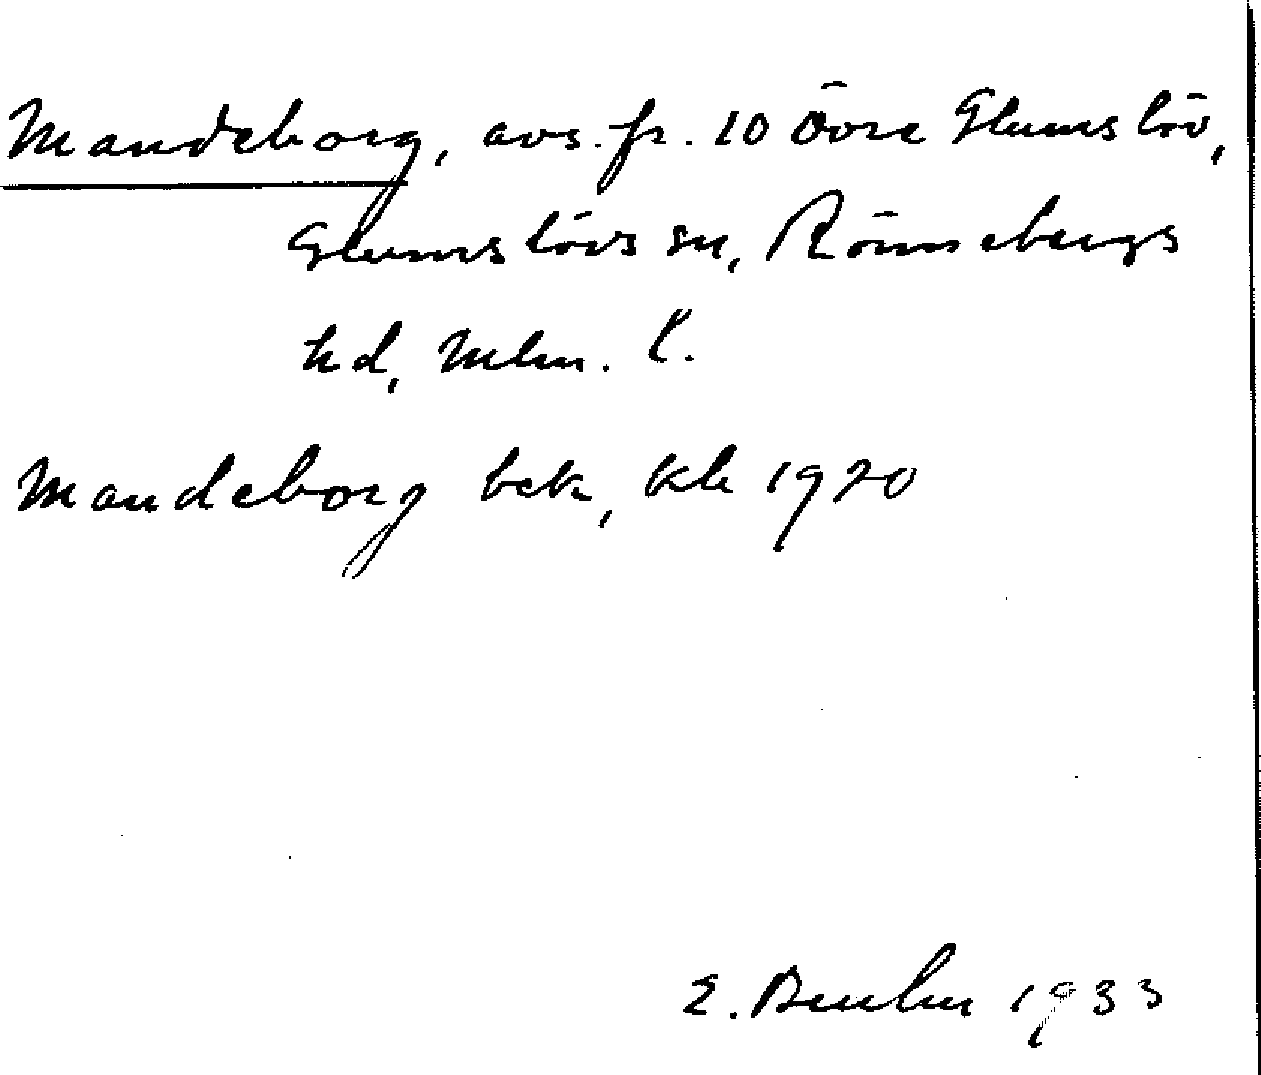 Mandeborg, avs. fr. 10 Övre Glumslöv,
Glumslövs sn, Rönnebergs
hd, Mlm. l.
Mandeborg bek, kb 1920
E. 1933